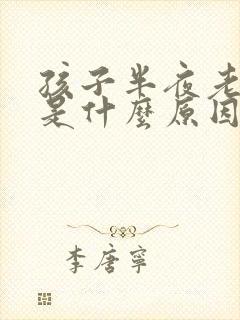 孩子半夜老
是什麼原因
李唐寧